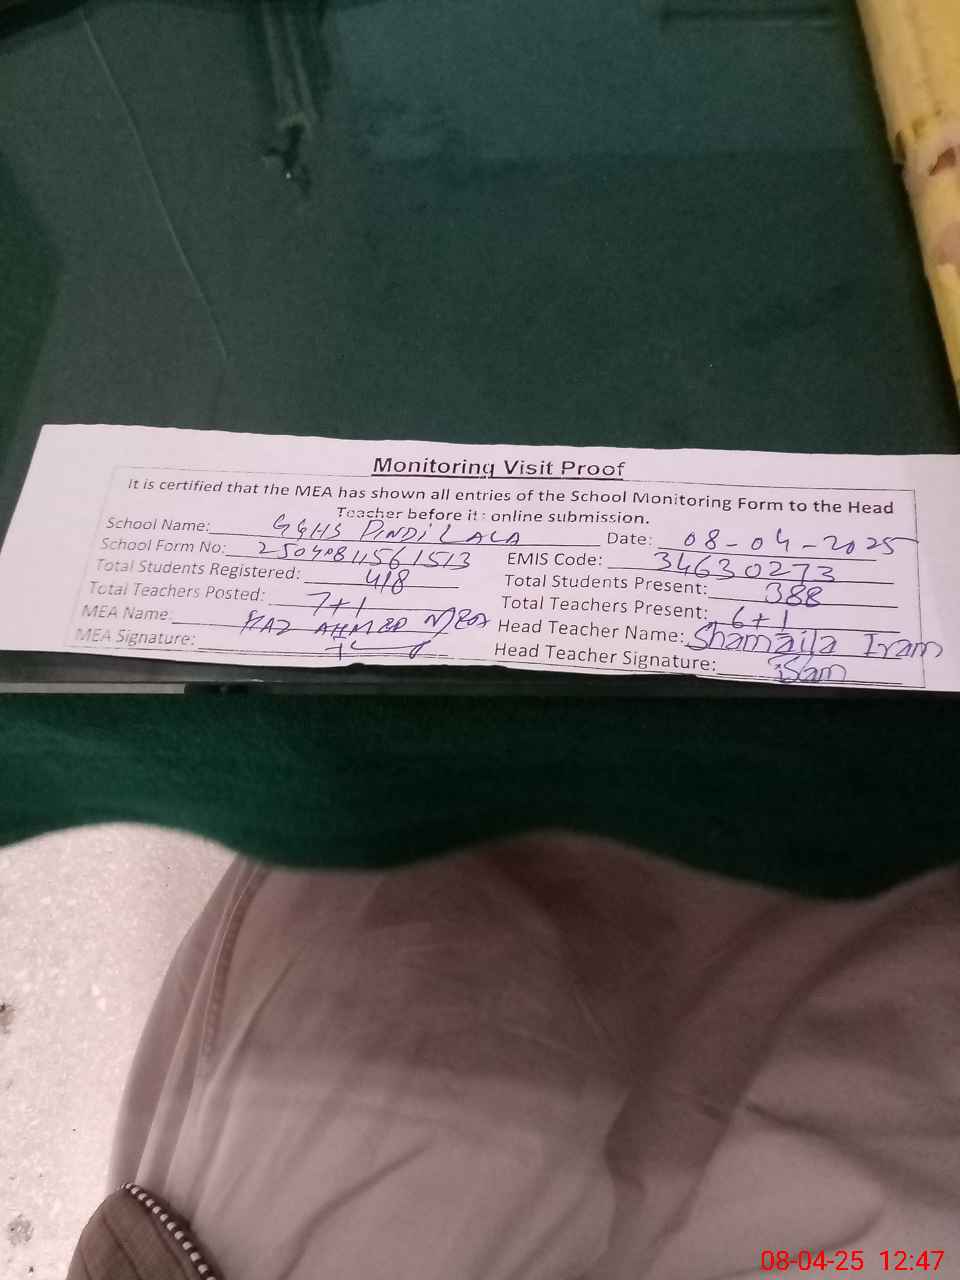 Monitoring Visit Proof
It is certified that the MEA has shown all entries of the School Monitoring Form to the Head
Teacher before it's online submission.
School Name: GGHS PINDI LALA Date: 08-04-2025
School Form No: 2504081156 1513 EMIS Code: 34630273
Total Students Registered: 418 Total Students Present: 388
Total Teachers Posted: 7+1 Total Teachers Present: 6+1
MEA Name: AHMED Head Teacher Name: Shamaila Iram
MEA Signature: Head Teacher Signature:
08-04-25 12:47